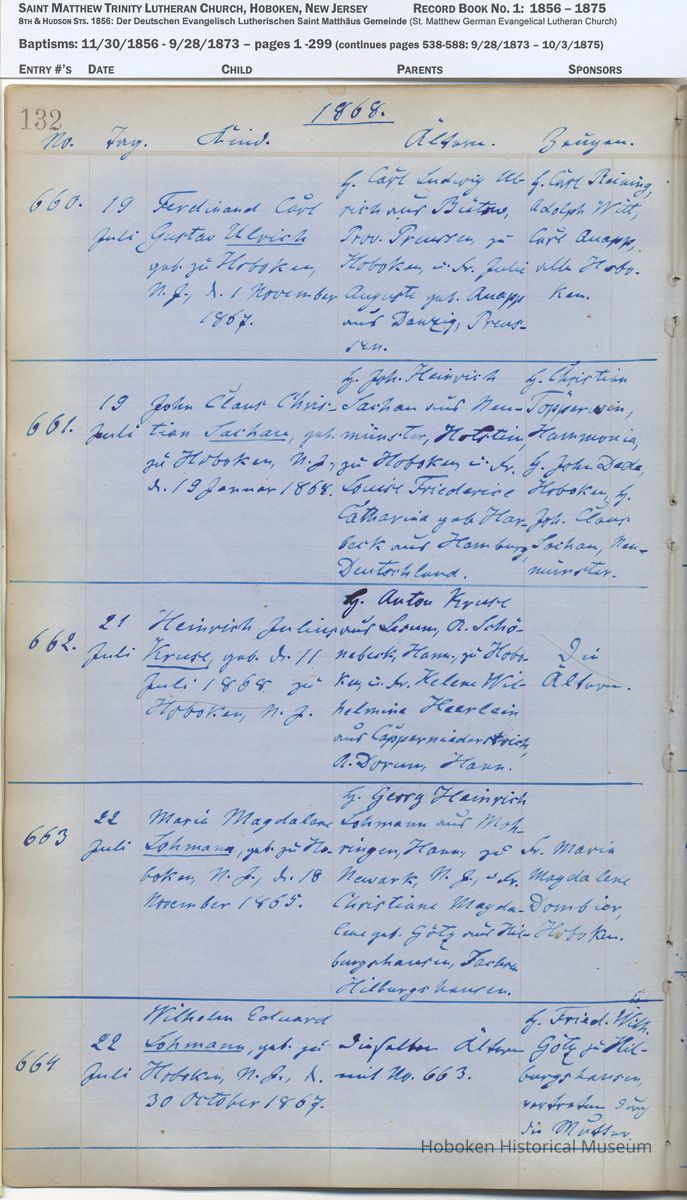 SAINT MATTHEW TRINITY LUTHERAN CHURCH, HOBOKEN, NEW JERSEY RECORD BOOK NO. 1: 1856 – 1875
8TH & HUDSON STS. 1856: Der Deutschen Evangelisch Lutherischen Saint Matthäus Gemeinde (St. Matthew German Evangelical Lutheran Church)
Baptisms: 11/30/1856 - 9/28/1873 – pages 1 -299 (continues pages 538-588: 9/28/1873 – 10/3/1875)
ENTRY #'S DATE CHILD PARENTS SPONSORS
132
1868.
No. Tag. Kind. Ältern. Zeugen.
660.
19
Juli
Ferdinand Carl
Gustav Ulrich
geb. zu Hoboken,
N. J., d. 1 November
1867.
H. Carl Ludwig Ul-
rich aus Bütow,
Prov. Preussen, zu
Hoboken, u. Fr. Julie
Auguste geb. Knapp
aus Danzig, Preus-
sen.
H. Carl Reining,
Adolph Witt,
Carl Knapp,
alle Hobo-
ken.
661.
19
Juli
John Claus Chris-
tian Sachau, geb.
zu Hoboken, N. J.,
d. 19 Januar 1868.
H. Joh. Heinrich
Sachau aus Neu-
münster, Holstein,
zu Hoboken u. Fr.
Louise Friederice
Catharina geb. Har-
beck aus Hamburg,
Deutschland.
H. Christian
Töpperwein,
Hammonia,
H. John Dede,
Hoboken, H.
Joh. Claus
Sachau, Neu-
münster.
662.
21
Juli
Heinrich Julius
Kruse, geb. d. 11
Juli 1868 zu
Hoboken, N. J.
H. Anton Kruse
aus Lesum, A. Schö-
nebeck, Hann., zu Hobo-
ken, u. Fr. Helene Wil-
helmine Heerlein
aus Cappernniederstrich,
A. Dorum, Hann.
Die
Ältern.
663
22
Juli
Maria Magdalene
Lohmann, geb. zu Ho-
boken, N. J., d. 18
November 1865.
H. Georg Heinrich
Lohmann aus Moh-
ringen, Hann., zu
Newark, N. J., u. Fr.
Christiane Magda-
lene geb. Götz aus Hil-
burgshausen, Sachsen
Hilburgshausen.
Fr. Maria
Magdalene
Dombier,
Hoboken.
664
22
Juli
Wilhelm Eduard
Lohmann, geb. zu
Hoboken, N. J., d.
30 October 1867.
Dieselben Ältern
mit No. 663.
H. Fried. Wilh.
Götz zu Hil-
burgshausen,
vertreten durch
die Mutter.
Hoboken Historical Museum